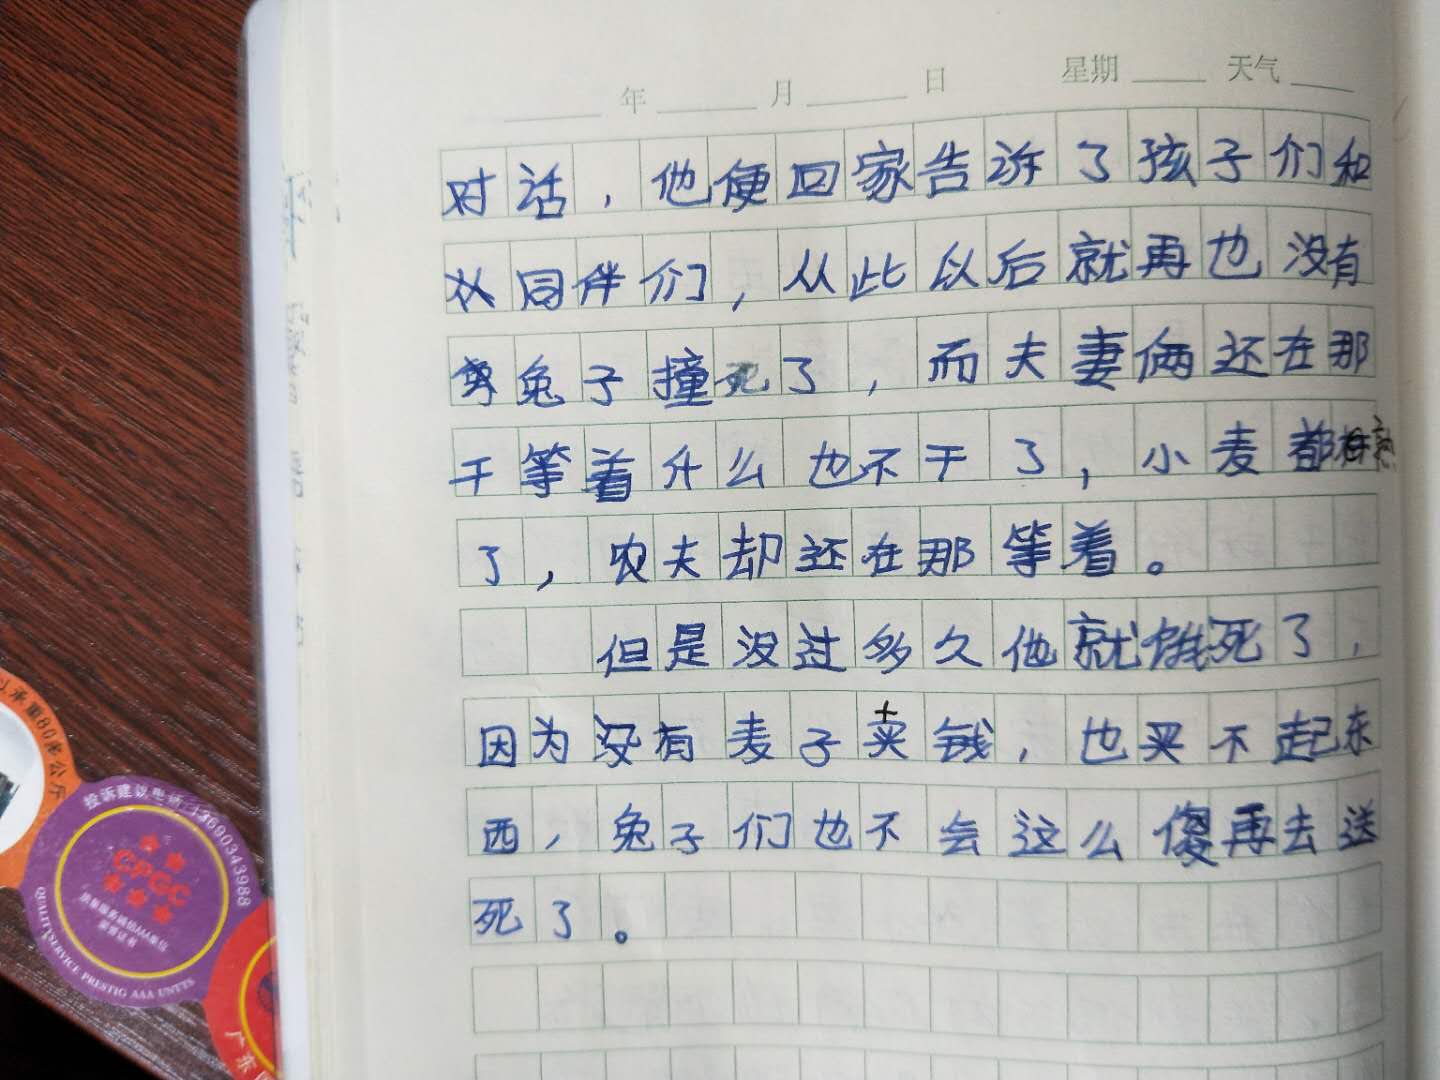 年 月 日 星期 天气
对话，他便回家告诉了孩子们和
同伴们，从此以后就再也没有
兔子撞死了，而夫妻俩还在那
干等着什么也不干了，小麦都
了，农夫却还在那等着。
但是没过多久他就饿死了，
因为没有麦子卖钱，也买不起东
西，兔子们也不会这么傻再去送
死了。
以承重80余公斤
投诉建议电话:13690343988
CPGC
质量服务诚信AAA单位
荣誉证书
QUALITYSERVICE PRESTIG AAA UNTTS
广东